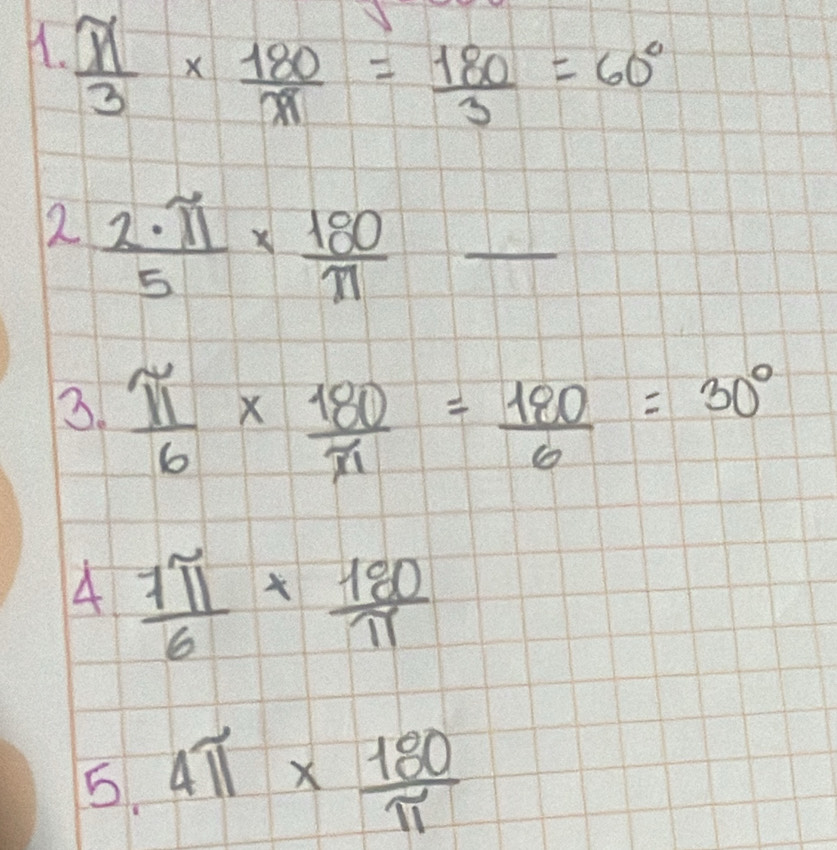 1. π/3 × 180/π = 180/3 = 60°
2 2·π/5 × 180/π —
3. π/6 × 180/π = 180/6 = 30°
4 7π/6 × 180/π
5. 4π × 180/π